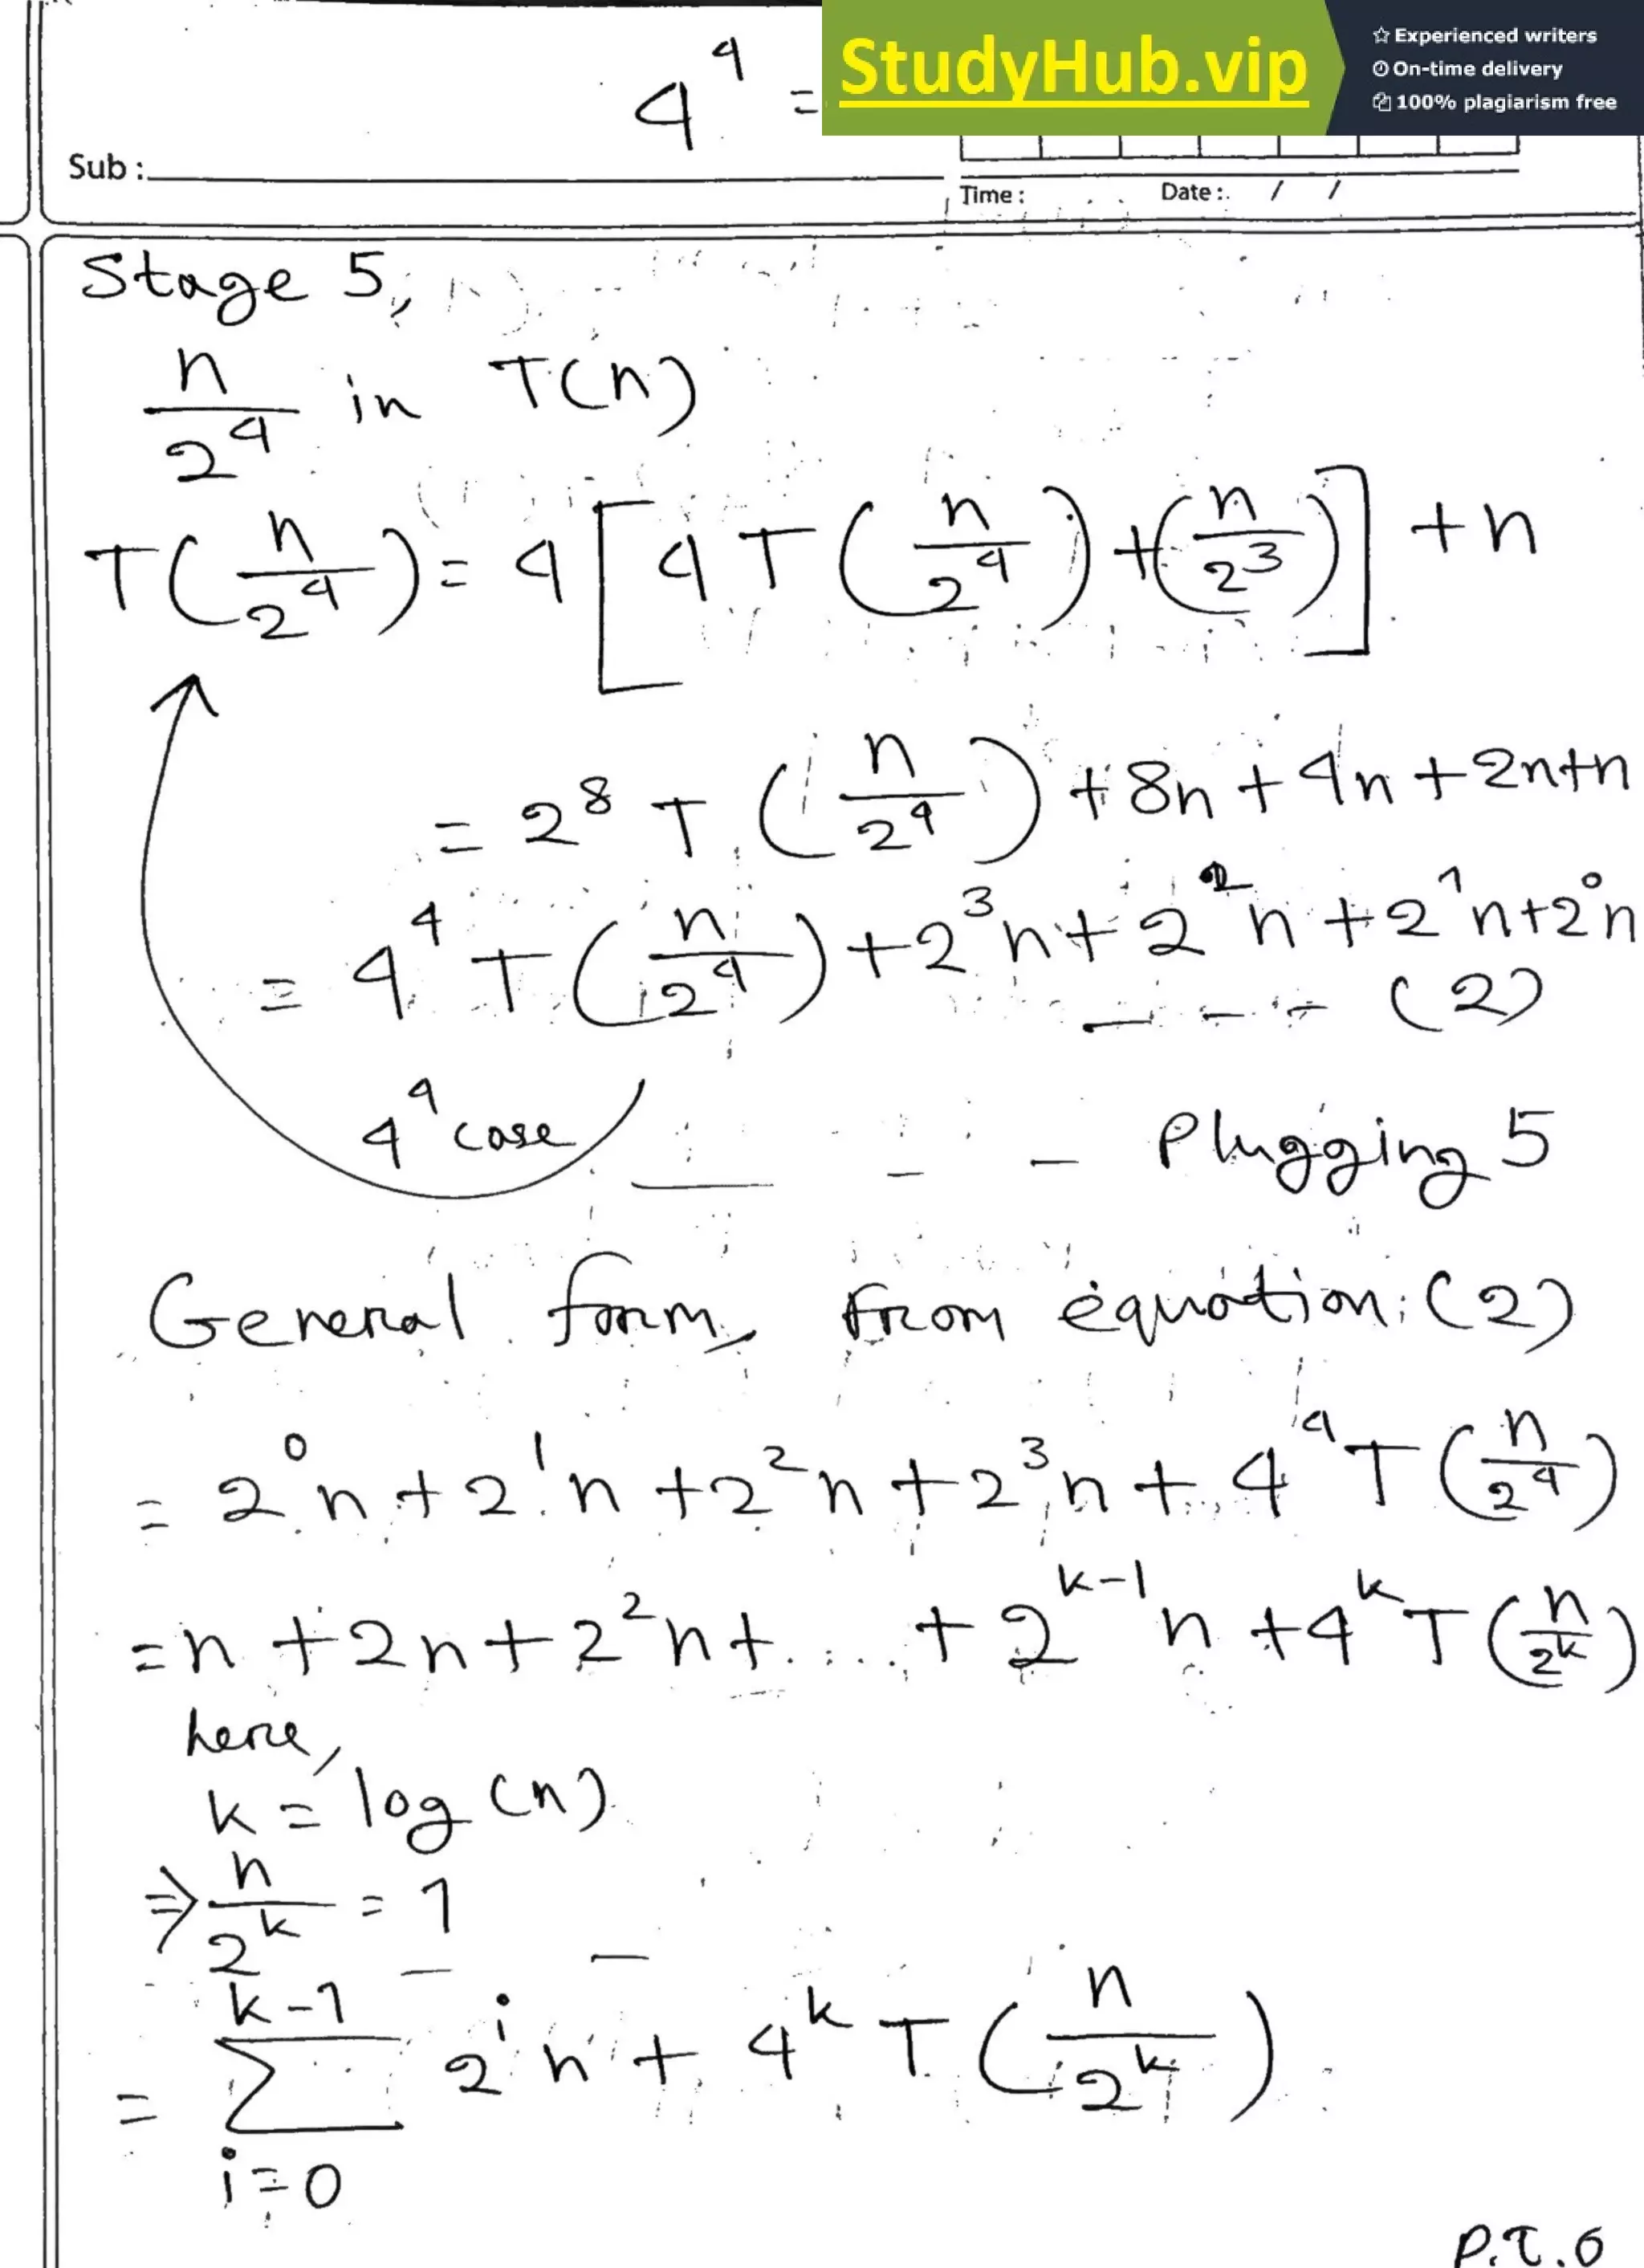 StudyHub.vip
Experienced writers
On-time delivery
100% plagiarism free
4^4 =
Sub :
Time : Date : / /
Stage 5,
n/2^4 in T(n)
T(n/2^4) = 4[4T(n/2^4) + (n/2^3)] + n
= 2^8 T(n/2^4) + 8n + 4n + 2n + n
= 4^4 T(n/2^4) + 2^3n + 2^2n + 2^1n + 2^0n
- - - (2)
4^4 case - - Plugging 5
General form, from equation (2)
= 2^0n + 2^1n + 2^2n + 2^3n + 4^4 T(n/2^4)
= n + 2n + 2^2n + .... + 2^(k-1)n + 4^k T(n/2^k)
here,
k = log(n)
⇒ n/2^k = 1
= ∑_{i=0}^{k-1} 2^i n + 4^k T(n/2^k)
P.T.O